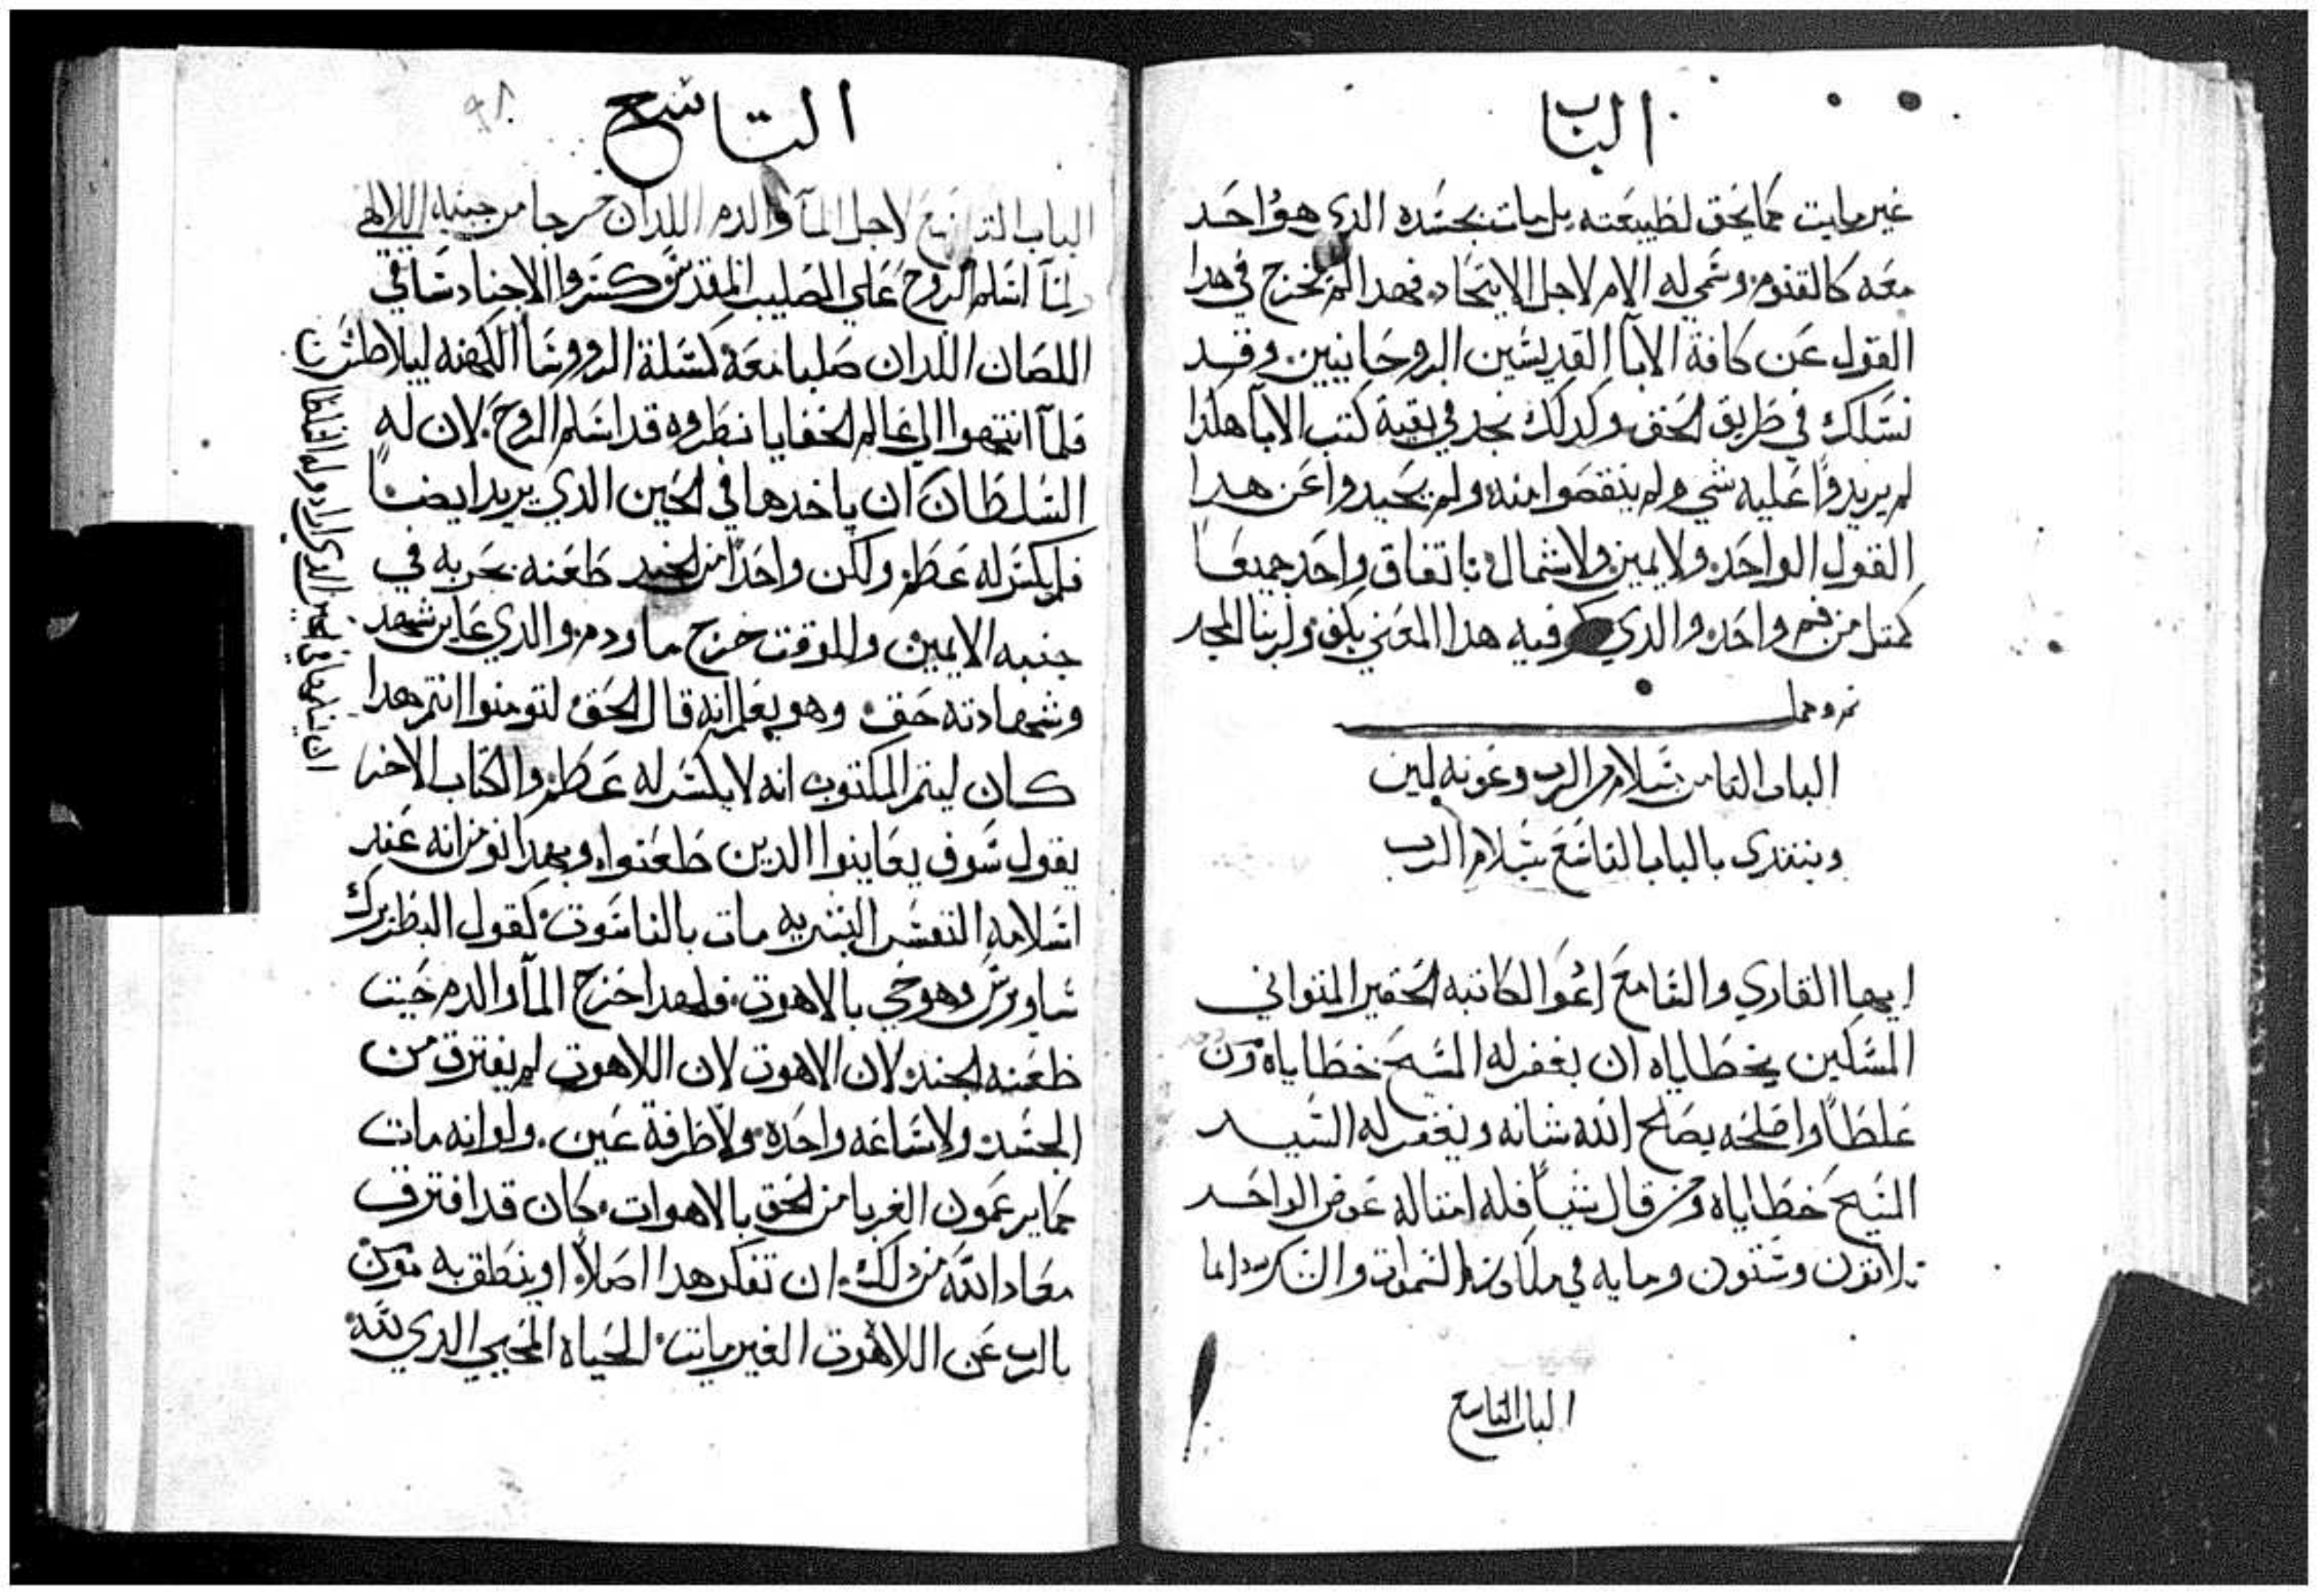 الباب
غير مايت كما يحق لطبيعته بل مات بجسده الدي هوُ احَد
معَه كالقنوم وسَمي له الالام لاجل الاتحَاد فهدا لم نخرج في هدا
القول عَن كافة الابآ القديسَين الروحَانيين وقد
نسَلك في طَريق الحَق وكدلك نجد في بقية كتب الابآ هكذا
لم يزيدوا عَليه شي ولم ينقصَوا منه ولم يحَيدوا عَن هدا
القول الواحَد ولا يمين ولا شمال باتفاق واحَد جميعَاً
كمتل من فم واحَد والدي فيه هدا المعَني يكفي ولربنا المجد
تم وكمل
الباب التامن بسَلام من الرب وعَونه امين
ونبتدي بالباب التاسَع بسَلام الرب
ايها القاري والسَامع ادعُوا لكاتبه الحَقير المتواني
المسَكين بخطَاياه ان يغفر له المسَيح خطَاياه ومن
غلطَاً واصَلحَه يصَلح الله شانه ويغفر له السَيد
المسَيحَ خطَاياه ومن قال شياً فله امتاله عَوض الواحَد
تلاتون وسَتون ومايه في ملكوت السَموات والشكر لله دايما
الباب التاسع
التاسَع
٩٨
الباب التاسَع لاجل المآ والدم اللدان خرجا من جنبه الالهي
لمآ اسَلم الروح عَلي الصَليب المقدس كسَروا الاجناد سَاقي
اللصَان اللدان صَلبا معَه كسَلة الرووسَا الكهنه لبيلاطسَ
فلمآ انتهوا الي عَالم الخفايا نظروه قد اسَلم الروحَ لان له
السَلطَان ان ياخدها في الحَين الدي يريد ايضاً
فلم يكسَر له عَظم ولكن واحَداً من الجند طَعَنه بحَربه في
جنبه الايمين وللوقت خرج ما ودم والدي عَاين شهد
وشهادته حَق وهو يعَلم انه قال الحَق لتومنوا انتم هدا
كان ليتم المكتوب انه لا يكسَر له عَظم والكتاب الاخر
يقول سَوف يعَاينوا الدين طَعَنوا وبهدا نومن انه عَند
اسَلامه النفسَ البشريه مات بالناسَوت كقول البطَريرك
سَاويرسَ وهو حَي بالاهوت فلهدا خرج المآ والدم حَيت
طَعَنه الجند لان الاهوت لان اللاهوت لم يفترق من
الجسَد ولا سَاعَه واحَدة ولا طَرفة عَين ولو انه مات
كما يزعَمون الغربا من الحَق بالاهوات كان قد افترق
معَاد الله من دلك ان تفكر هدا اصَلاً او ينطَق به مومن
بالرب عَن اللاهوت الغير مايت الحَياه المحَيي الدي لله
ان ينهما في الحَين الدي اراد وله السلطان